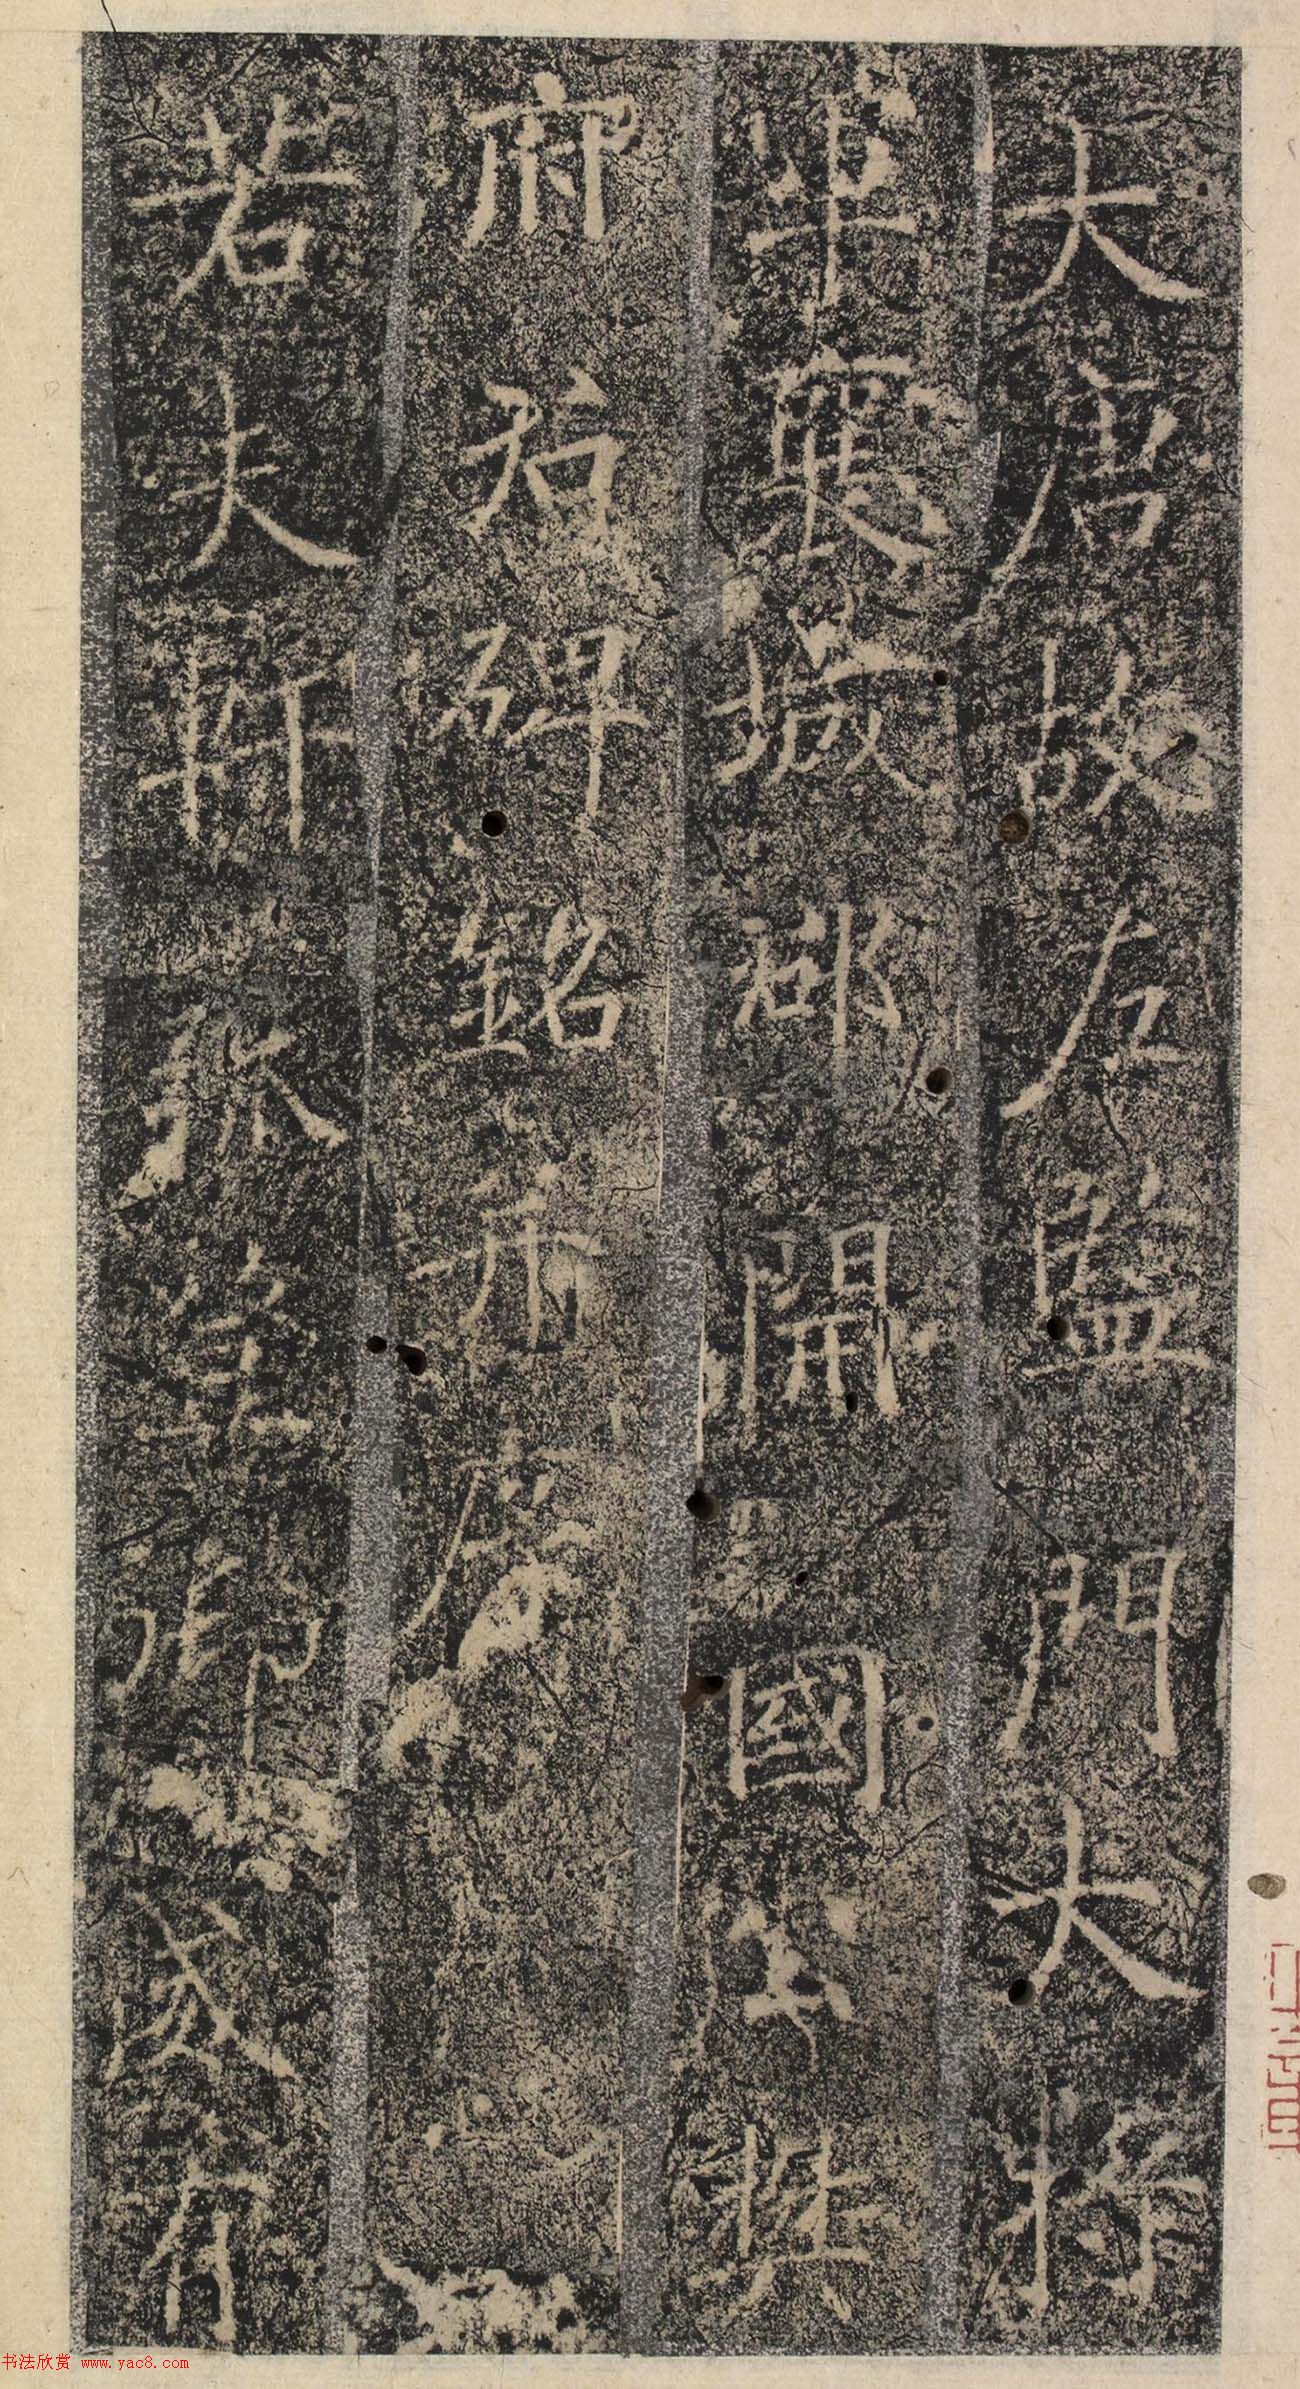 大唐故左監門大將
軍襄城郡開國公樊
府君碑銘并序
若夫軒弧御咸有
书法欣赏 www.yac8.com